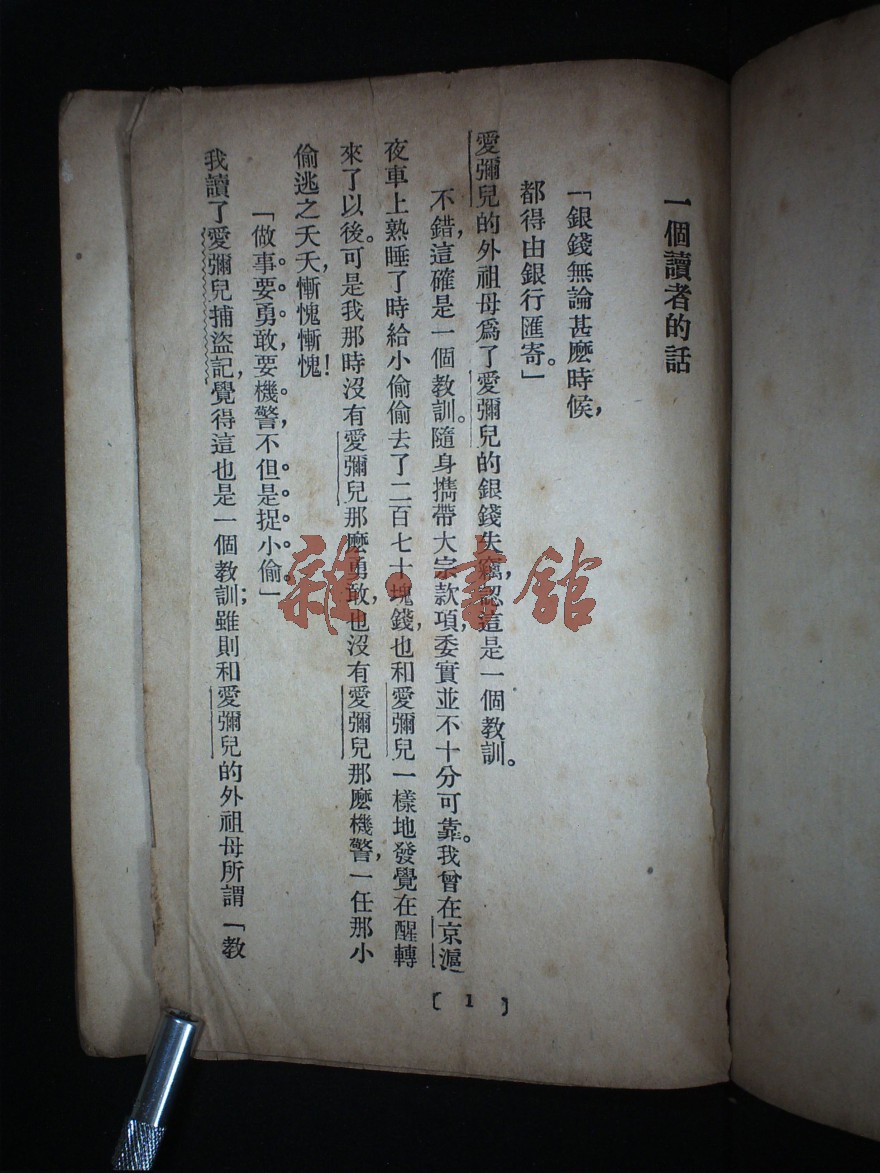 一個讀者的話
「銀錢無論甚麽時候，
都得由銀行匯寄。」
愛彌兒的外祖母爲了愛彌兒的銀錢失竊，認這是一個教訓。
不錯，這確是一個教訓。隨身攜帶大宗款項，委實並不十分可靠。我曾在京滬
夜車上熟睡了時給小偷偷去了二百七十塊錢，也和愛彌兒一樣地發覺在醒轉
來了以後。可是我那時沒有愛彌兒那麽勇敢，也沒有愛彌兒那麽機警，一任那小
偷逃之夭夭，慚愧慚愧！
「做事要勇敢，要機警，不但是捉小偷。」
我讀了愛彌兒捕盜記，覺得這也是一個教訓；雖則和愛彌兒的外祖母所謂「教
〔1〕
雜·書館